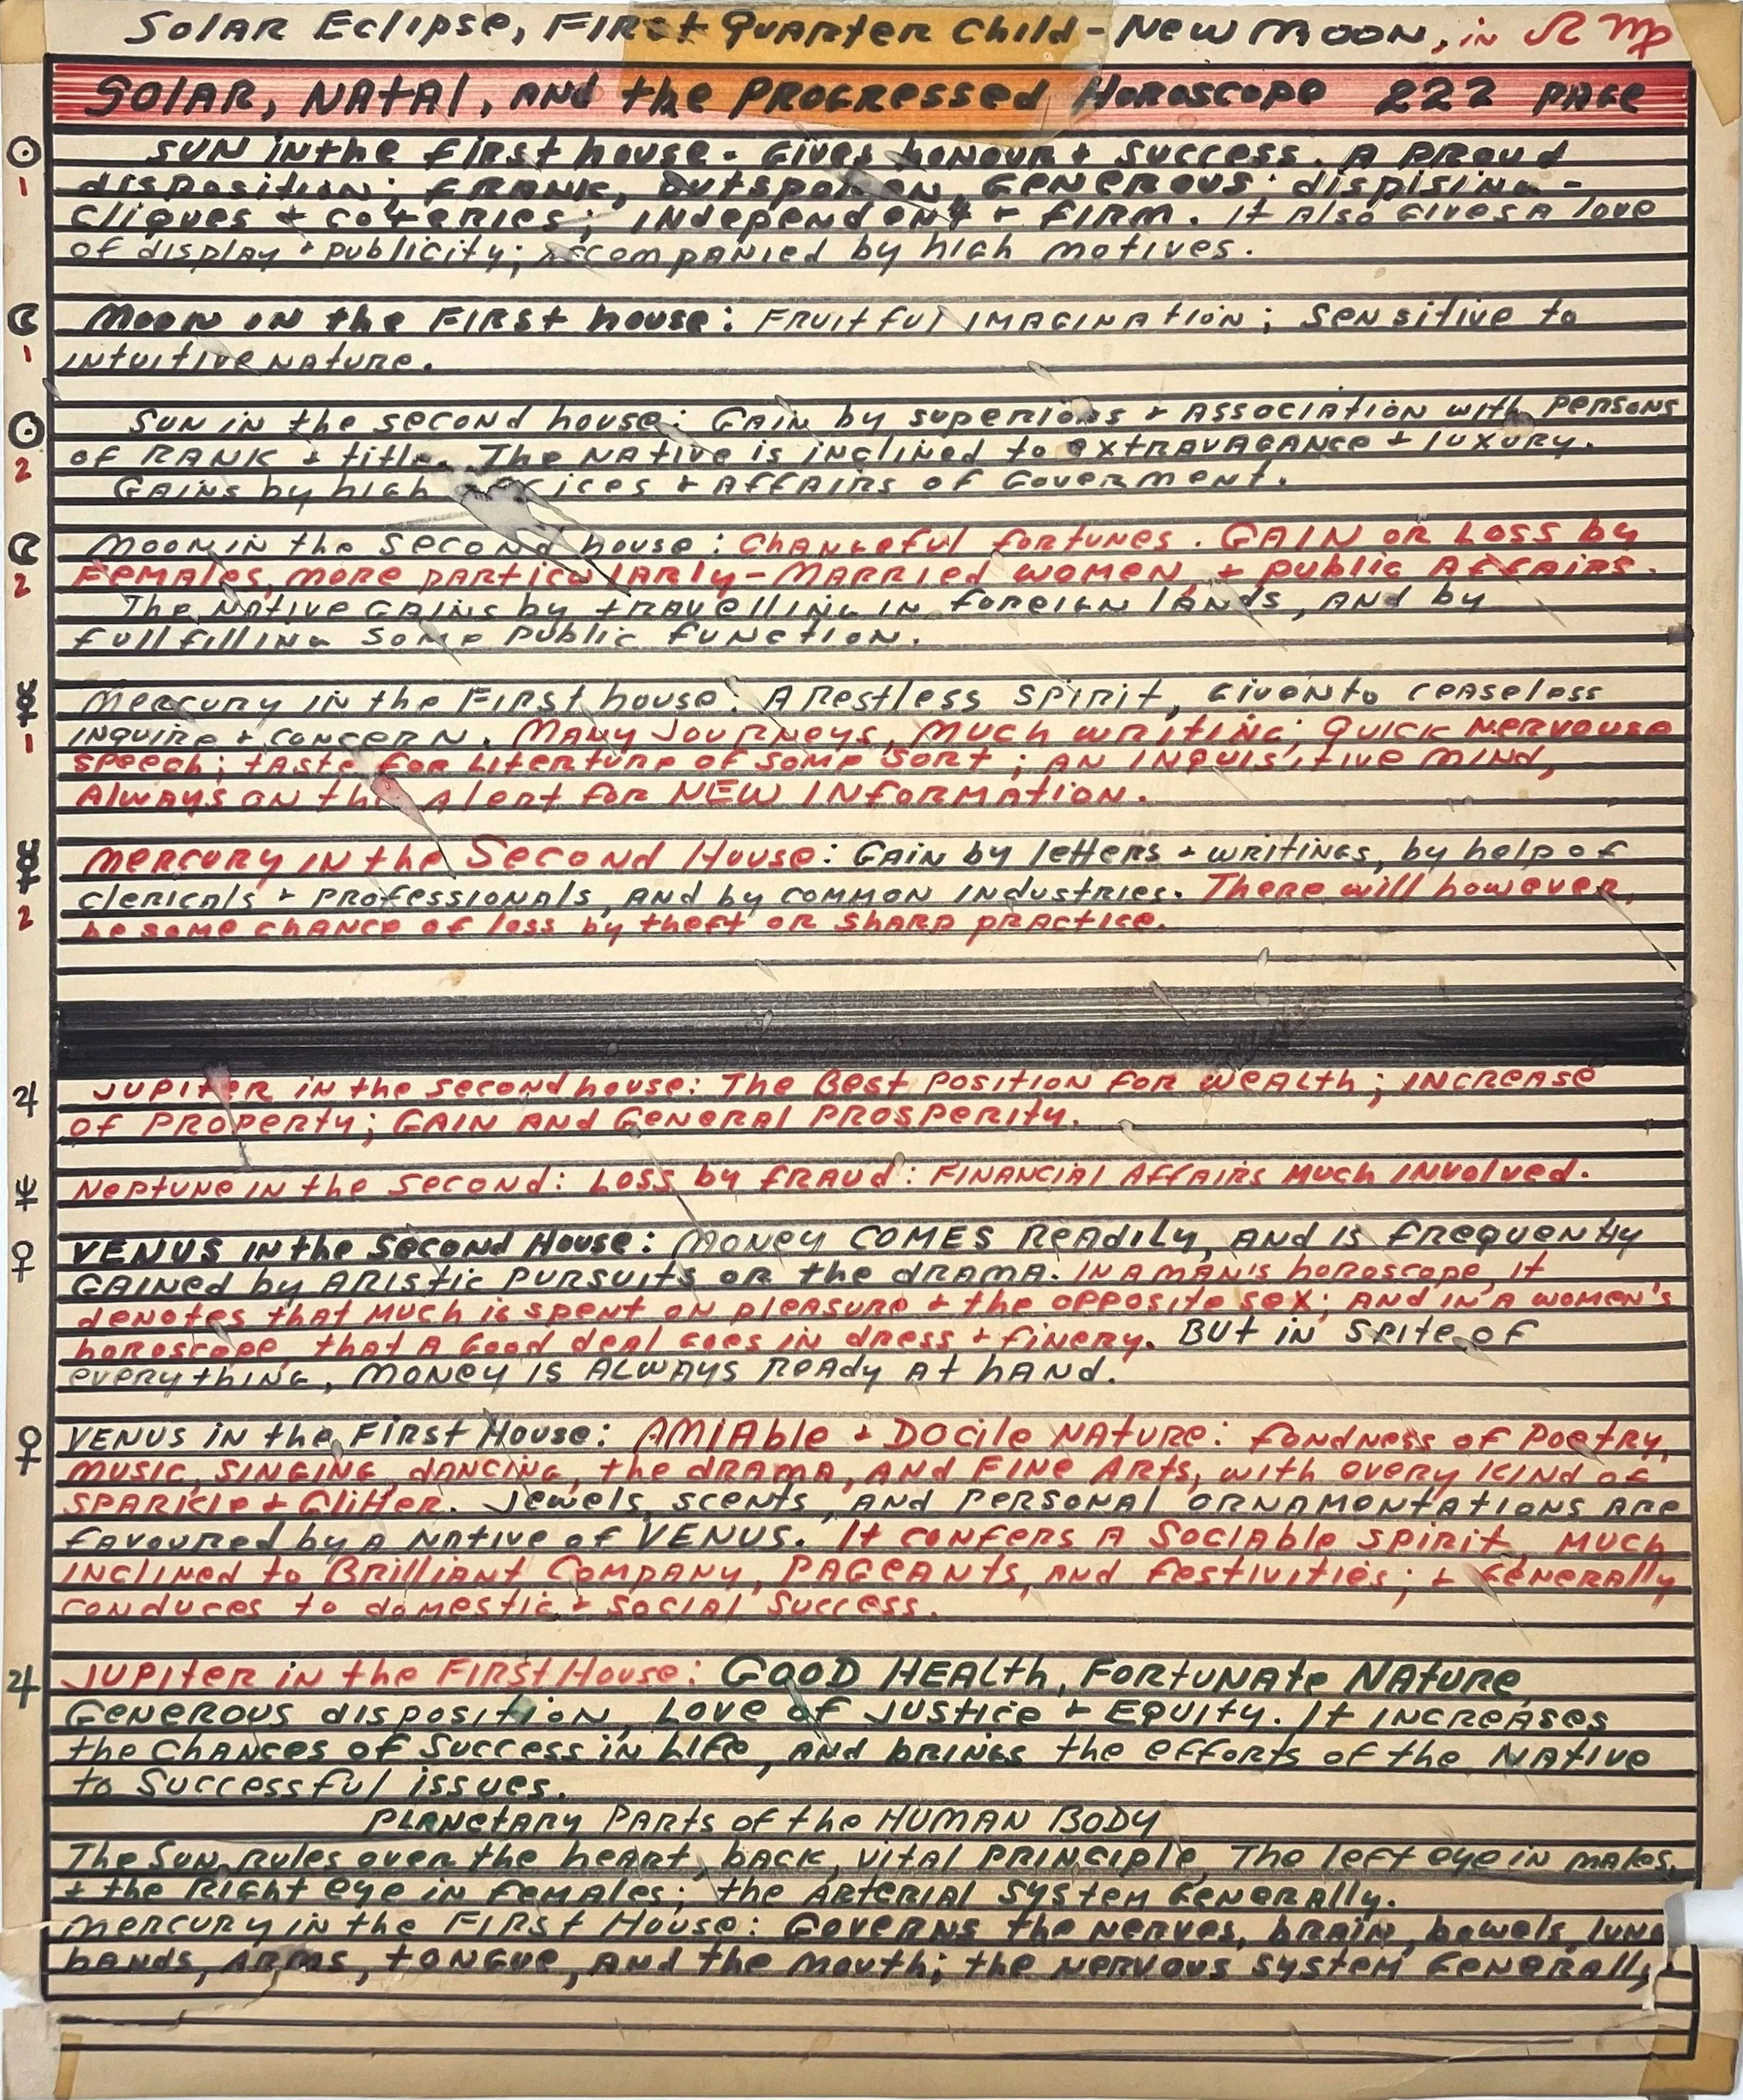 Solar Eclipse, First Quarter Child - New Moon, in ☊ ♍
Solar, Natal, and the Progressed Horoscope 222 page
☉ Sun in the first house - Gives honour + success. A proud
1 disposition; frank, outspoken, generous; dispising -
cliques + coteries; independent + firm. It also gives a love
of display + publicity; accompanied by high motives.
☾ Moon in the First house: Fruitful imagination; sensitive to
1 intuitive nature.
☉ Sun in the second house: Gain by superiors + association with persons
2 of rank + title. The native is inclined to extravagance + luxury.
Gains by high offices + affairs of Goverment.
☾ Moon in the second house: Changeful fortunes. Gain or Loss by
2 females, more particularly - married women, + public affairs.
The native gains by travelling in foreign lands, and by
fullfilling some public function.
☿ Mercury in the First house: A Restless spirit, given to ceaseless
1 inquire + concern. Many Journeys, much writing; quick nervouse
speech; taste for literture of some sort; an inquisitive mind,
always on the alert for NEW information.
☿ Mercury in the Second House: Gain by letters + writings, by help of
2 clericals + professionals, and by common industries. There will however,
be some chance of loss by theft or sharp practice.
♃ Jupiter in the second house: The Best position for wealth; increase
of property; gain and general prosperity.
♆ Neptune in the second: Loss by fraud: Financial affairs much involved.
♀ VENUS in the Second House: Money COMES readily, and is frequently
gained by aristic pursuits or the drama. In a man's horoscope, it
denotes that much is spent on pleasure + the opposite sex; and in a women's
horoscope, that a good deal goes in dress + finery. But in spite of
everything, money is always ready at hand.
♀ VENUS in the First House: Amiable + Docile nature: fondness of Poetry,
music, singing, dancing, the drama, and fine arts, with every kind of
sparkle + Glitter. Jewels, scents, and personal ornamontations are
favoured by a native of VENUS. It confers a sociable spirit much
inclined to Brilliant Company, pageants, and festivities; + Generally
conduces to domestic + social success.
♃ Jupiter in the First House: GOOD HEALth, Fortunate Nature
Generous disposition, Love of justice + Equity. It increases
the chances of success in life, and brings the efforts of the native
to successful issues.
Planetary Parts of the HUMAN BODY
The Sun, rules over the heart, back, vital principle, The left eye in makes,
+ the Right eye in females; the arterial system generally.
Mercury in the First House: Governs the nerves, brain, bowels,
hands, arms, tongue, and the mouth; the nervous system Generally